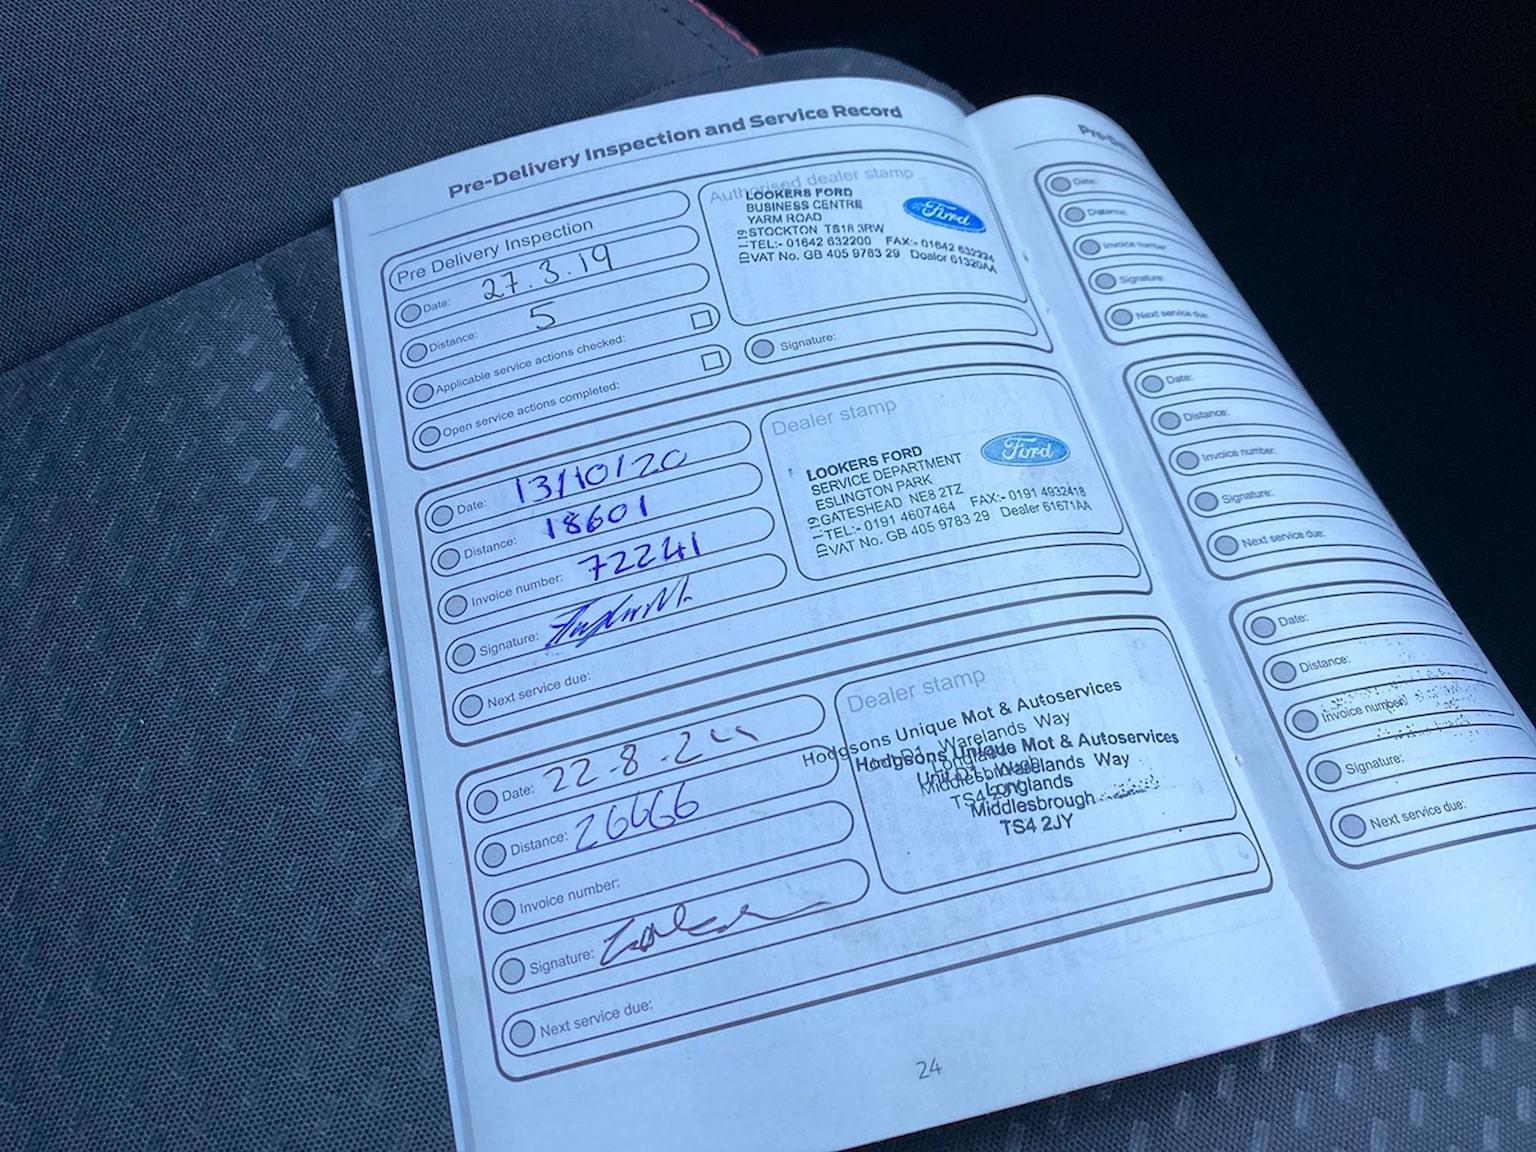 Pre-Delivery Inspection and Service Record
Pre Delivery Inspection
Date: 27.3.19
Distance: 5
Applicable service actions checked:
Open service actions completed:
Authorised dealer stamp
LOOKERS FORD
BUSINESS CENTRE
YARM ROAD
STOCKTON TS18 3RW
TEL:- 01642 632200 FAX:- 01642 632224
VAT No. GB 405 9783 29 Dealer 61320AA
Ford
Signature:
Date: 13/10/20
Distance: 18601
Invoice number: 72241
Signature:
Next service due:
Dealer stamp
LOOKERS FORD
SERVICE DEPARTMENT
ESLINGTON PARK
GATESHEAD NE8 2TZ
TEL:- 0191 4607464 FAX:- 0191 4932418
VAT No. GB 405 9783 29 Dealer 61671AA
Ford
Date: 22-8-24
Distance: 26666
Invoice number:
Signature:
Next service due:
Dealer stamp
Hodgsons Unique Mot & Autoservices
Warelands Way
Hodgsons Unique Mot & Autoservices
Unit D1 Warelands Way
Longlands
Middlesbrough
TS4 2JY
24
Date:
Distance:
Invoice number:
Signature:
Next service due:
Date:
Distance:
Invoice number:
Signature:
Next service due:
Date:
Distance:
Invoice number:
Signature:
Next service due: